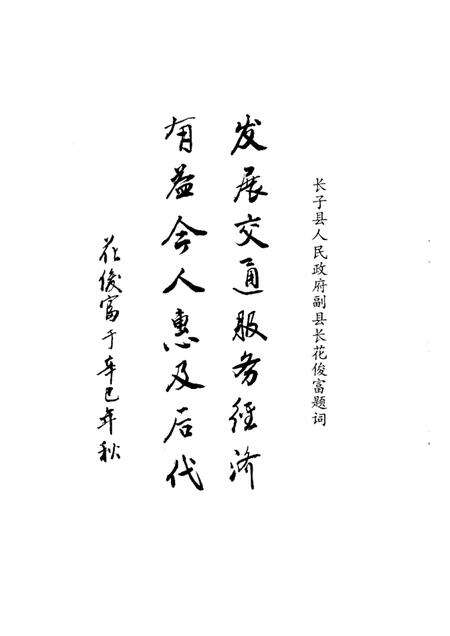 长子县人民政府副县长花俊富题词
发展交通服务经济
有益今人惠及后代
花俊富于辛巳年秋